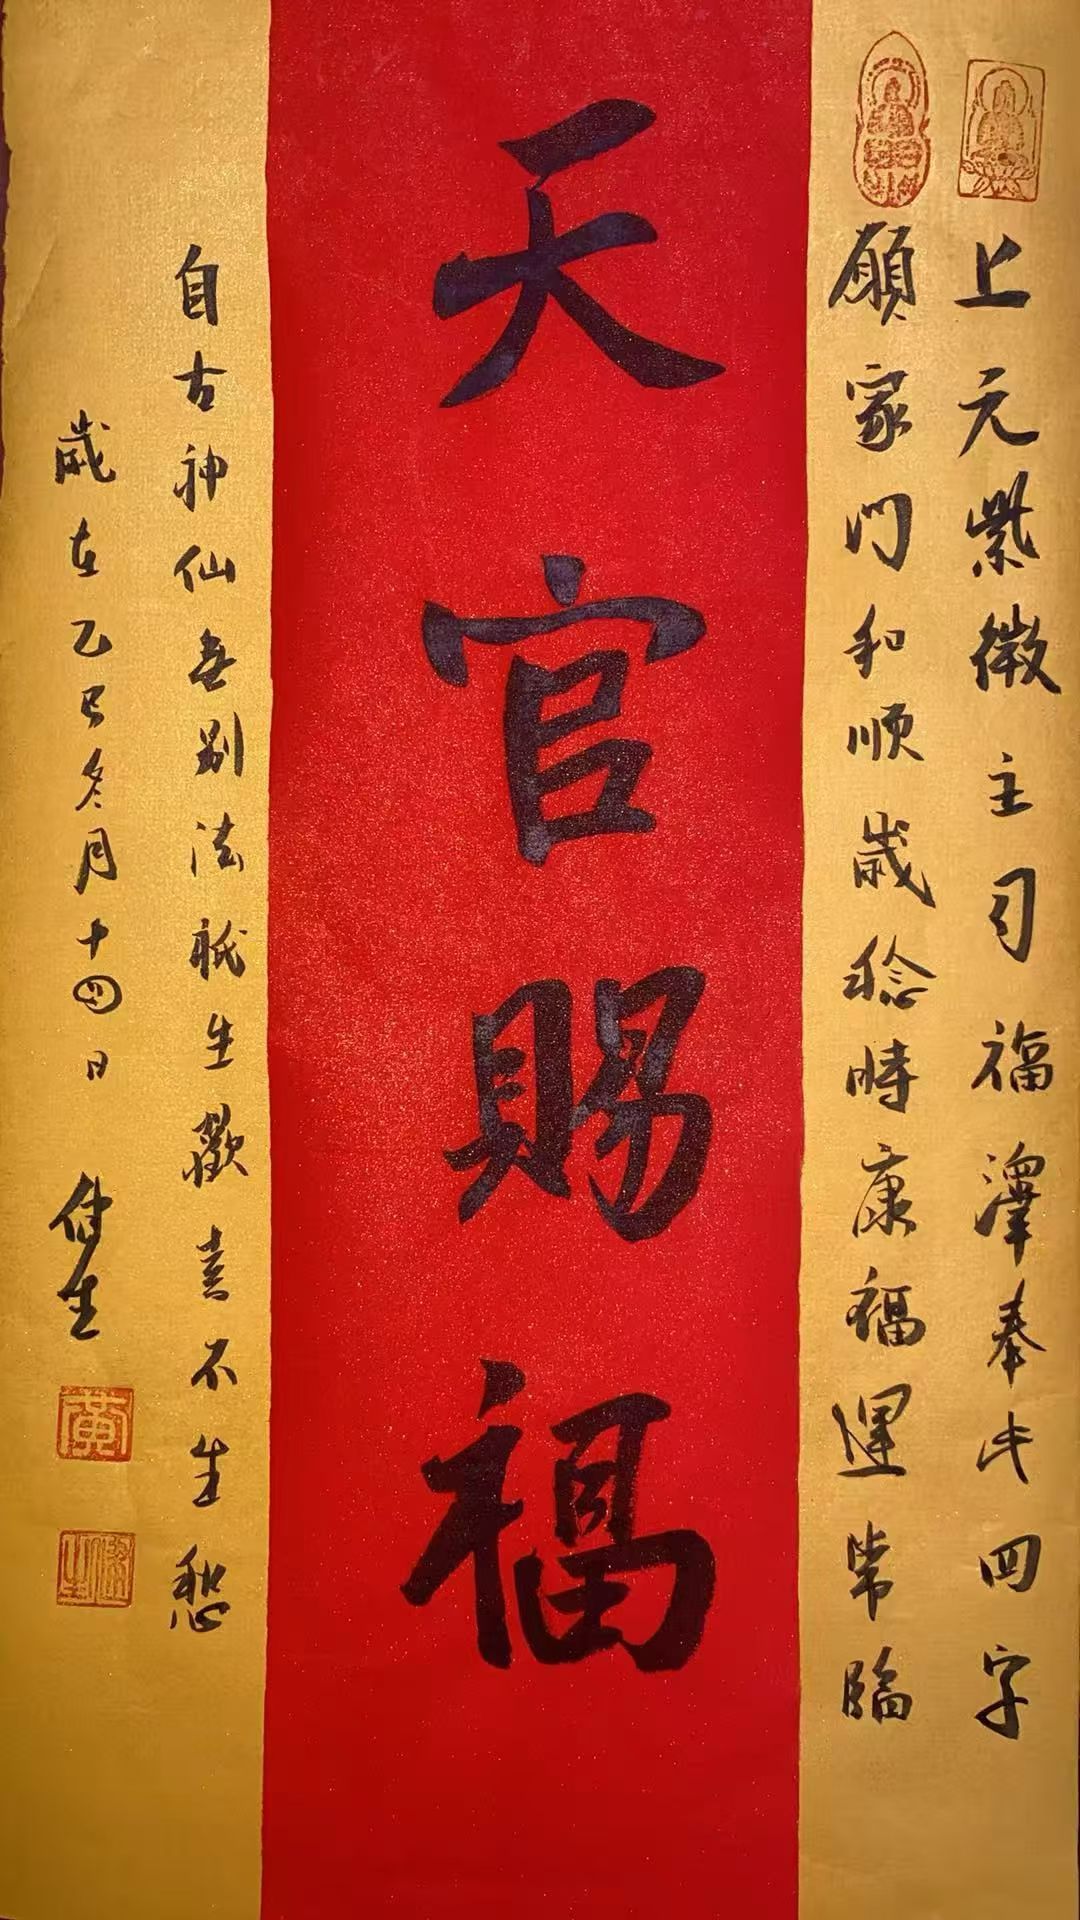 上元紫微主司福澤奉此四字
願家門和順歲稔時康福運常臨
天官賜福
自古神仙無別法祗生歡喜不生愁
歲在乙巳冬月十四日
黄